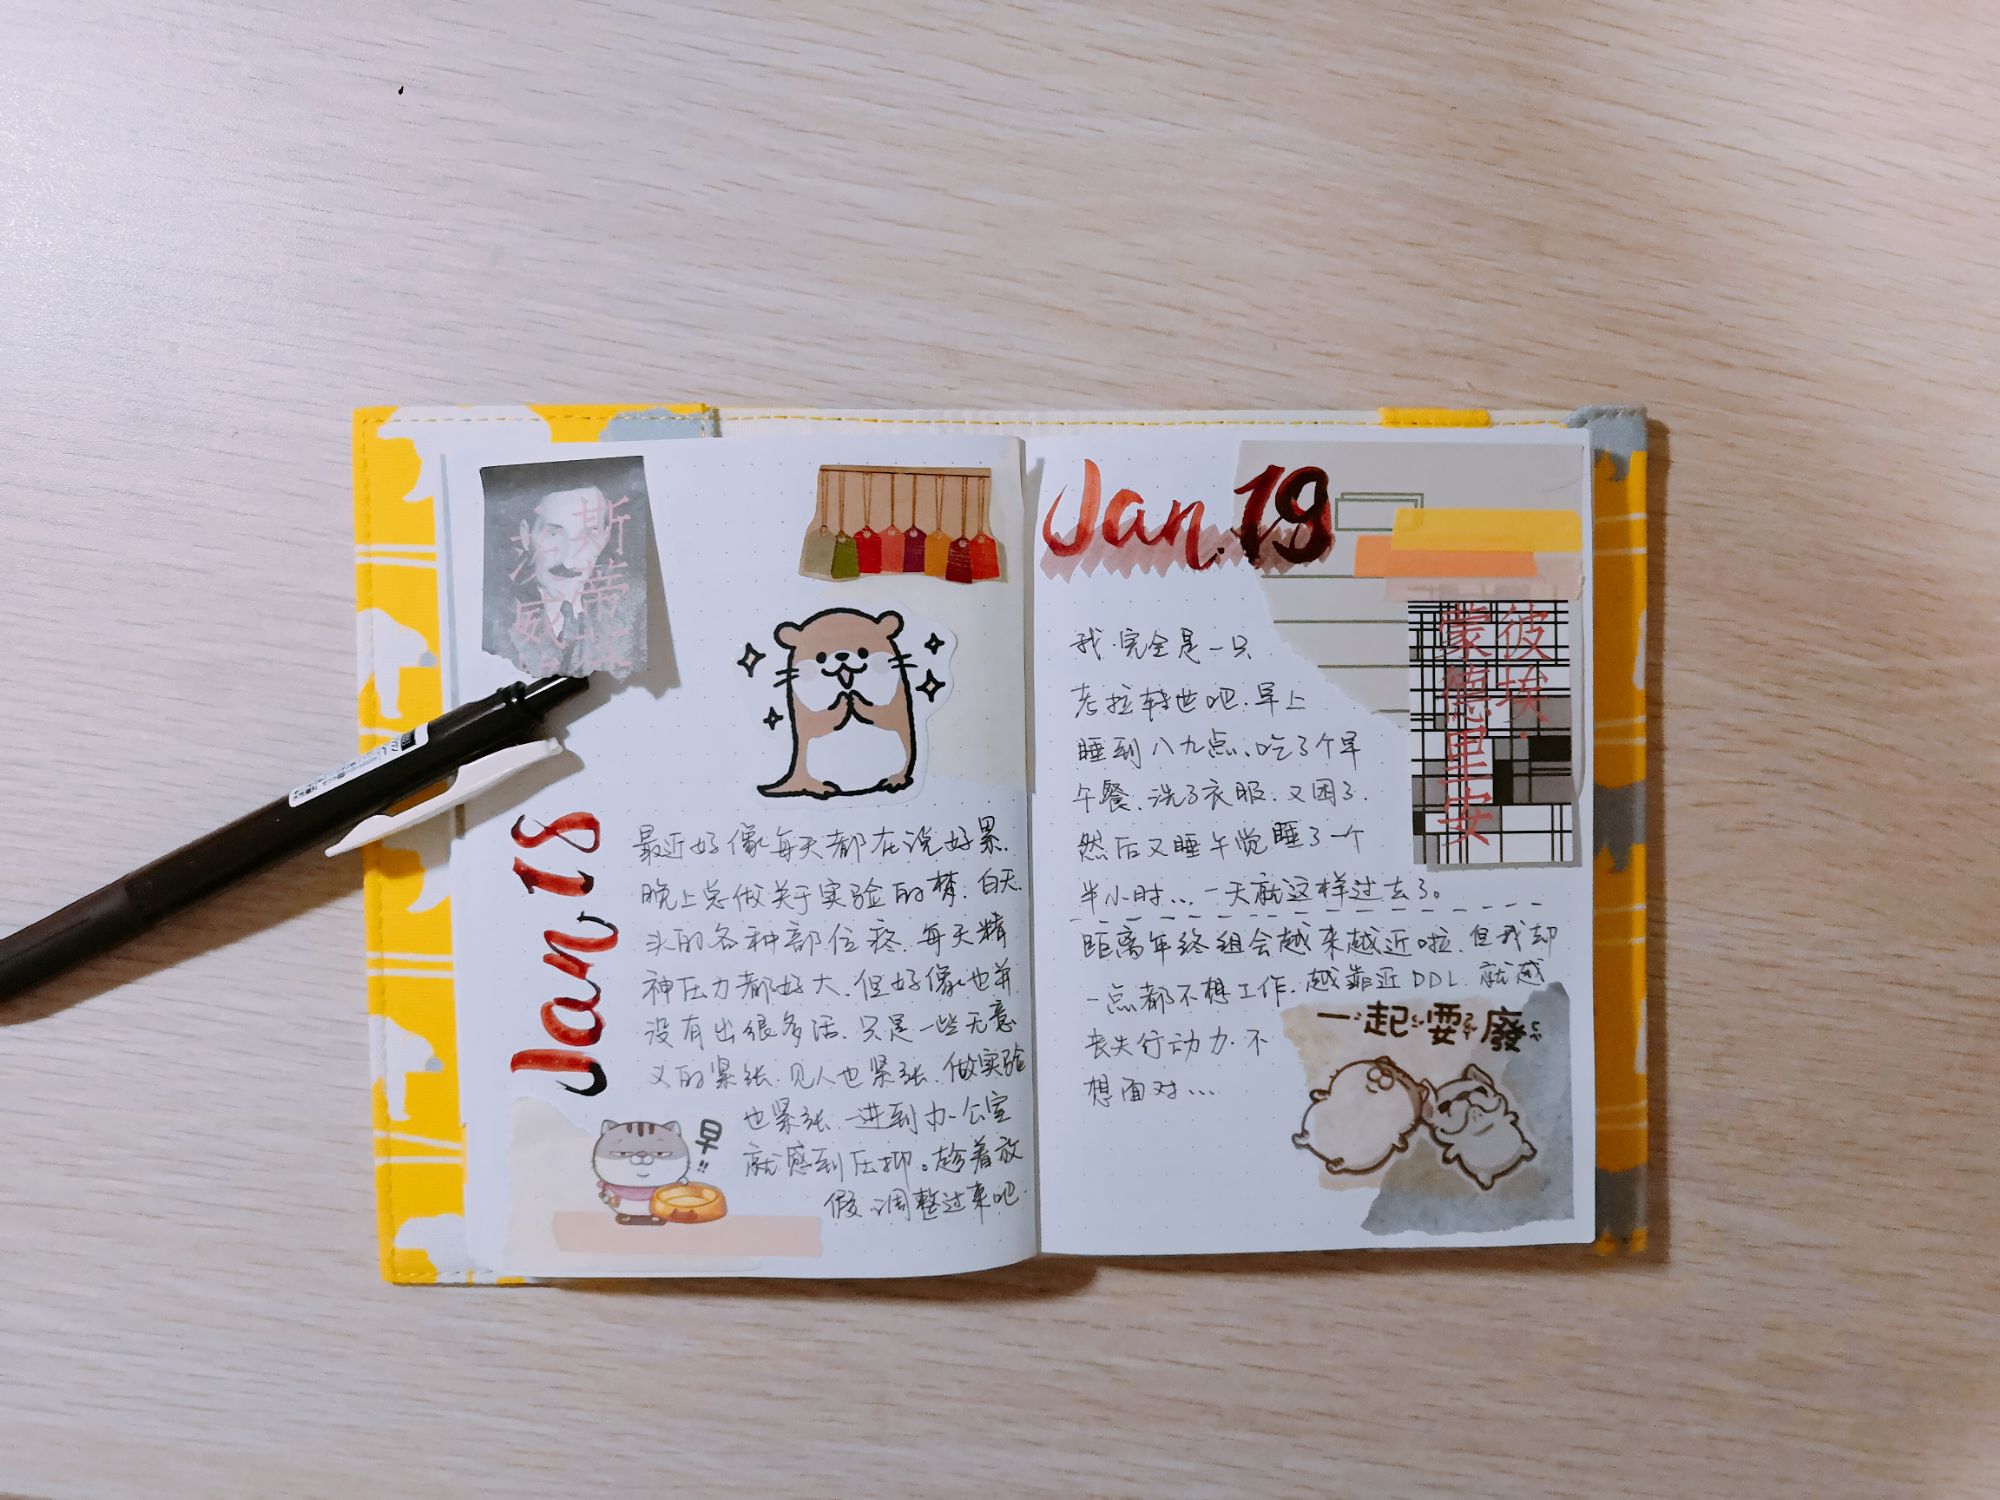 斯蒂芬
茨威格
Jan 18
最近好像每天都在说好累.
晚上总做关于实验的梦.白天
头的各种部位疼.每天精
神压力都好大.但好像也并
没有出很多活.只是一些无意
义的紧张.见人也紧张.做实验
也紧张.一进到办公室
就感到压抑。趁着放
假.调整过来吧.
早!!
Jan.19
彼埃·
蒙德里安
我完全是一只
考拉转世吧.早上
睡到八九点.吃了个早
午餐.洗了衣服.又困了.
然后又睡午觉睡了一个
半小时...一天就这样过去了。
距离年终组会越来越近啦.但我却
一点都不想工作.越靠近DDL.就越
丧失行动力.不
想面对...
一起耍廢